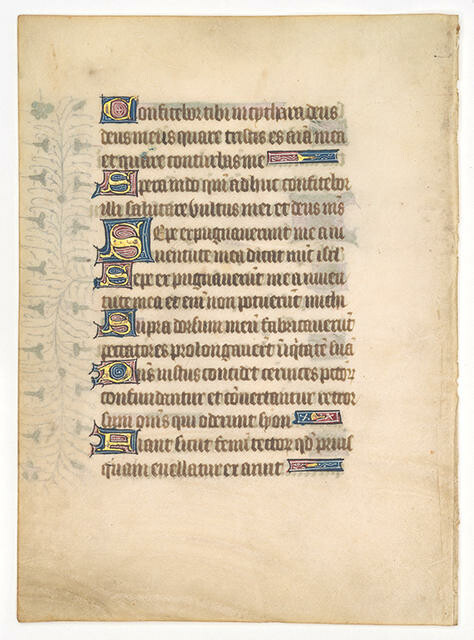 Confitebor tibi in cythara deus
deus meus quare tristis es aīā mea
et quare conturbas me
Spera in dō qm̄ adhuc confitebor
illi salutare vultus mei et deus mēs
Sepe expugnaverunt me a iu
ventute mea dicat nūc isrl̄
Sepe expugnaverunt me a iuven
tute mea et em̄ non potuerūt michi
Supra dorsum meū fabricaverūt
peccatores prolongaverūt īiqtatē suā
Dn̄s iustus concidet cervices pctōr
confundentur et cōvertantur retror
sum om̄s qui oderunt syon
Fiant sicut fenū tector qd̄ prius
quam evellatur exaruit